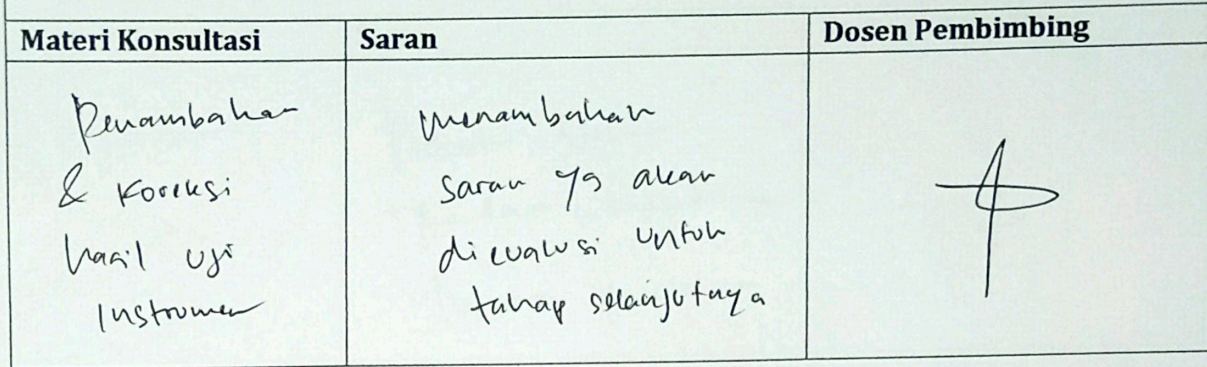 Materi Konsultasi
Saran
Dosen Pembimbing
Penambahan
& Koreksi
hasil uji
Instrumen
menambahan
saran yg akan
dievalusi untuk
tahap selanjutnya